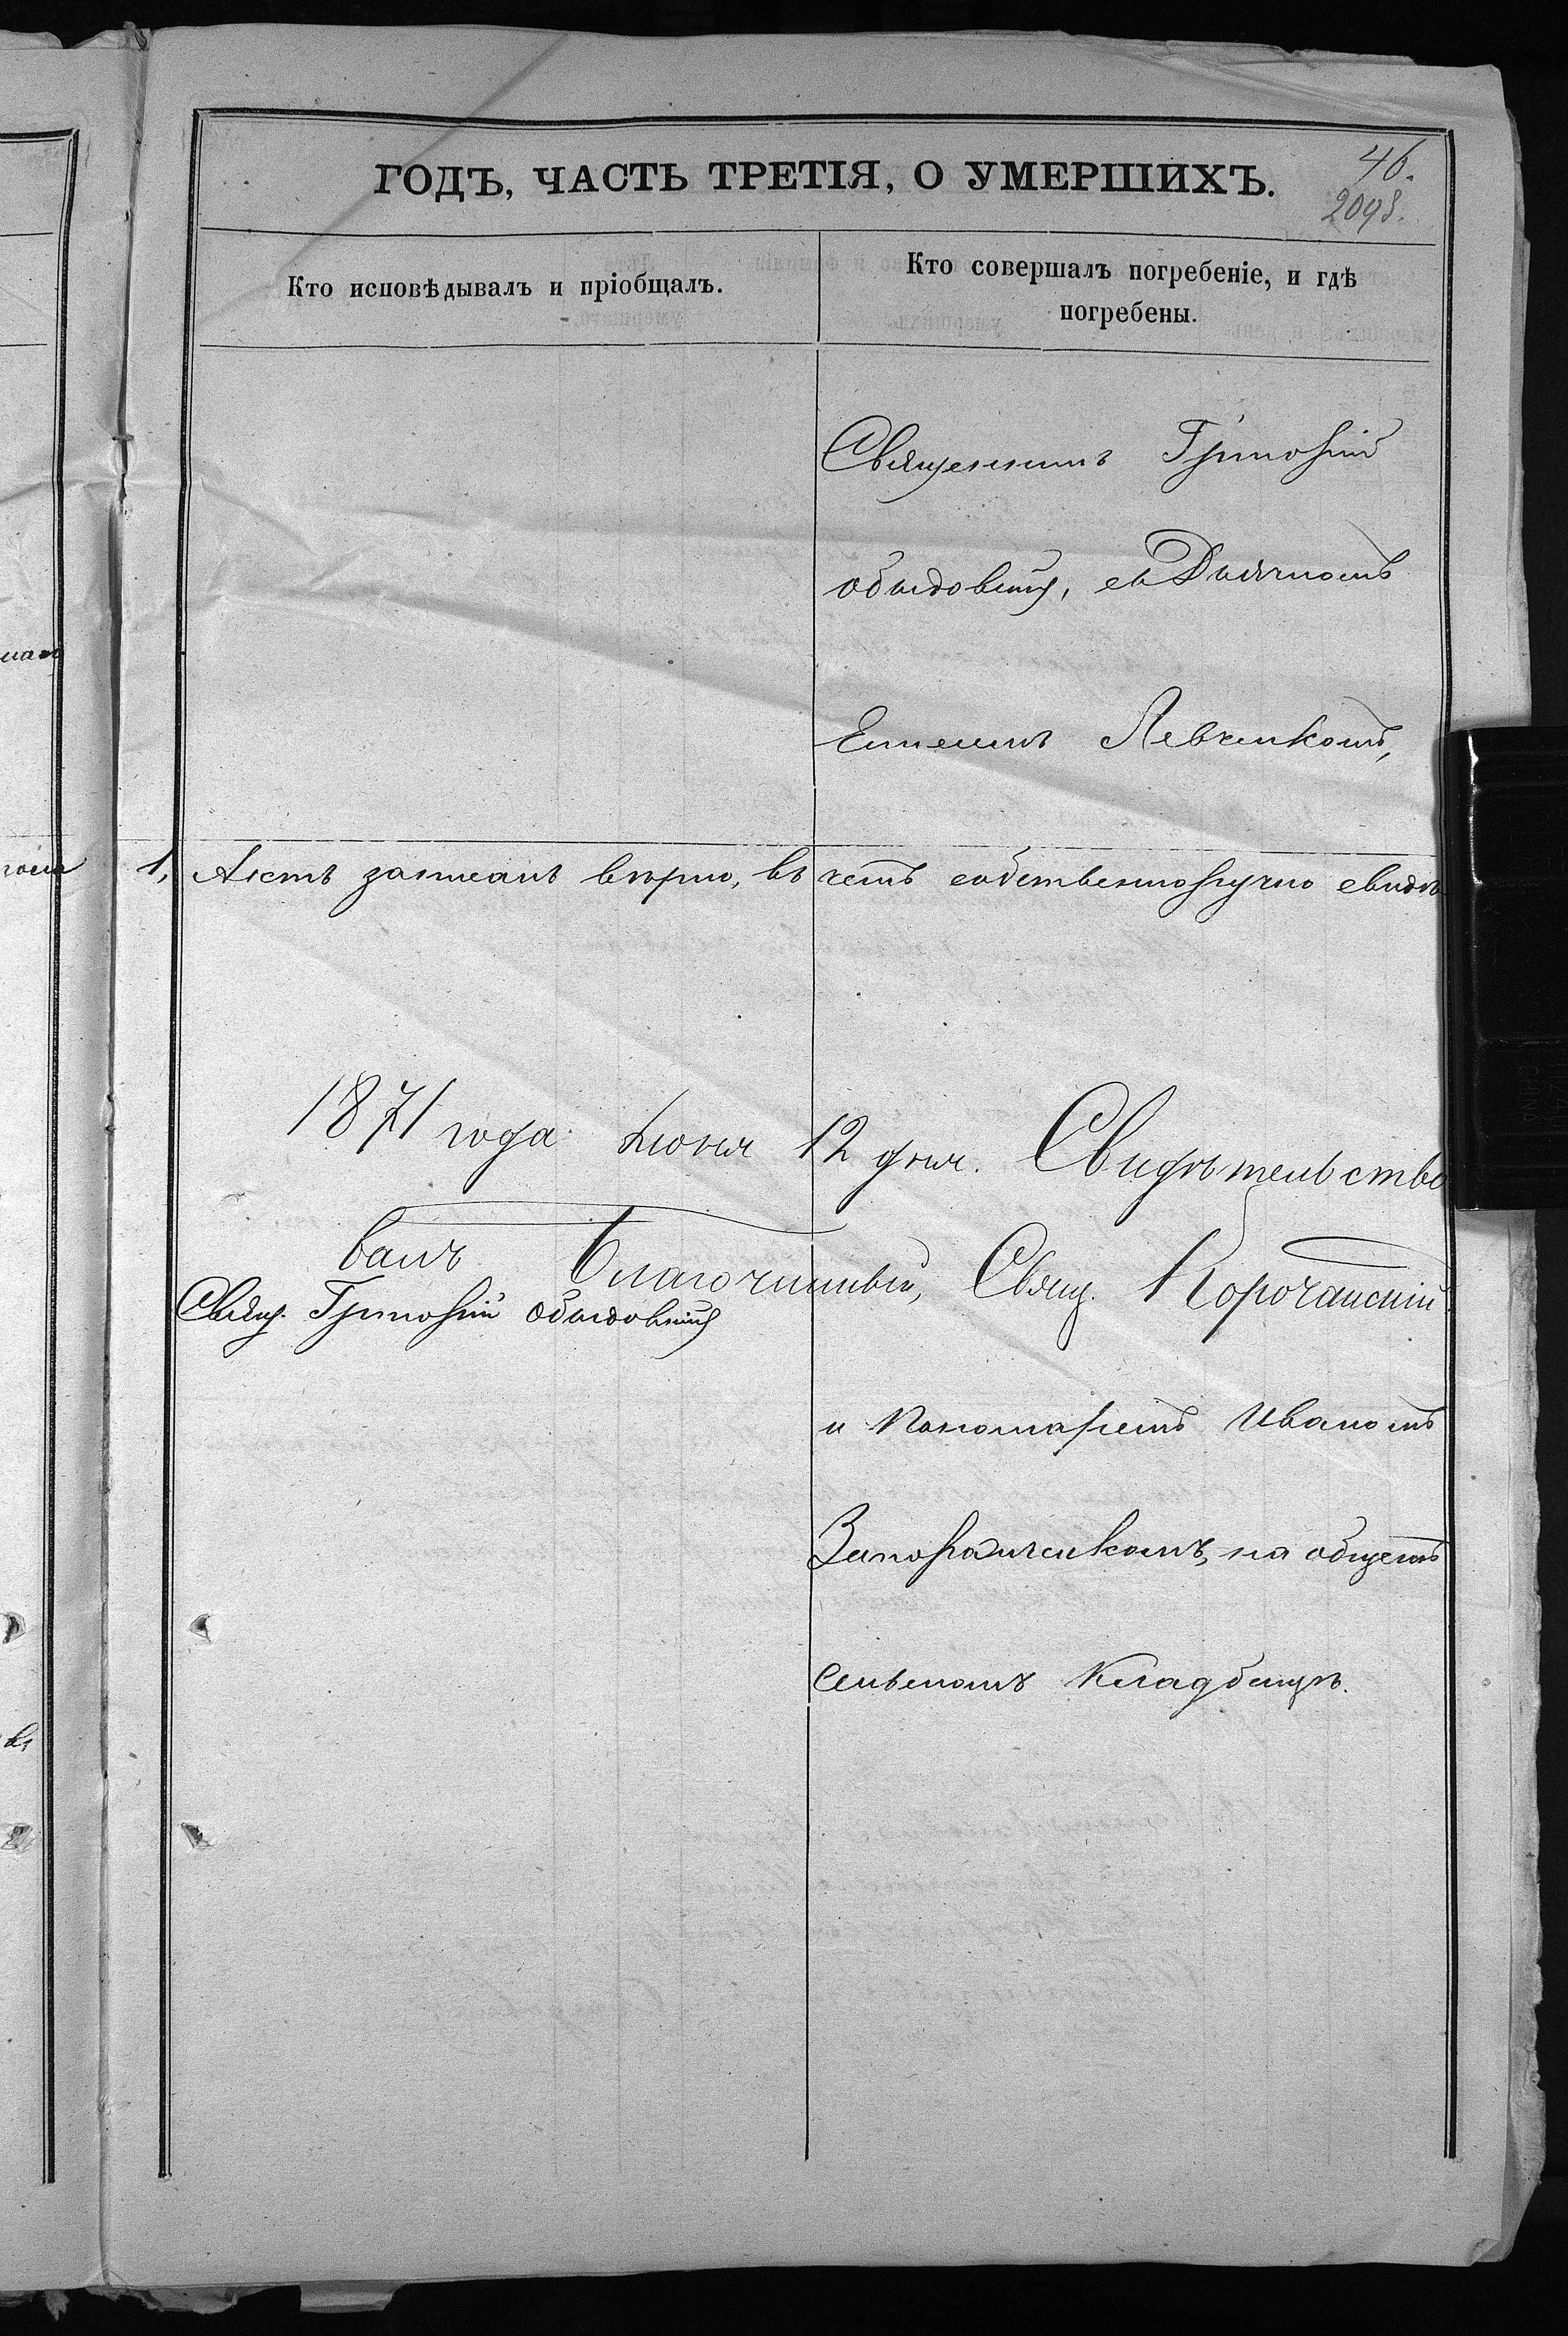 ГОДЪ, ЧАСТЬ ТРЕТІЯ, О УМЕРШИХЪ.
46.
2093.
Кто исповѣдывалъ и пріобщалъ.
Кто совершалъ погребеніе, и гдѣ
погребены.
Священникъ Григорій
съ Дьячкомъ
Левченкомъ,
1, Актъ записанъ вѣрно, въ чемъ собственноручно свидѣ
1871 года Іюня 12 дня. Свидѣтельство
валъ Благочинный, Свящ. Корочанскій
Свящ. Григорій
и Пономаремъ Иваномъ
Запорожченкомъ, на общемъ
сельскомъ кладбищѣ.